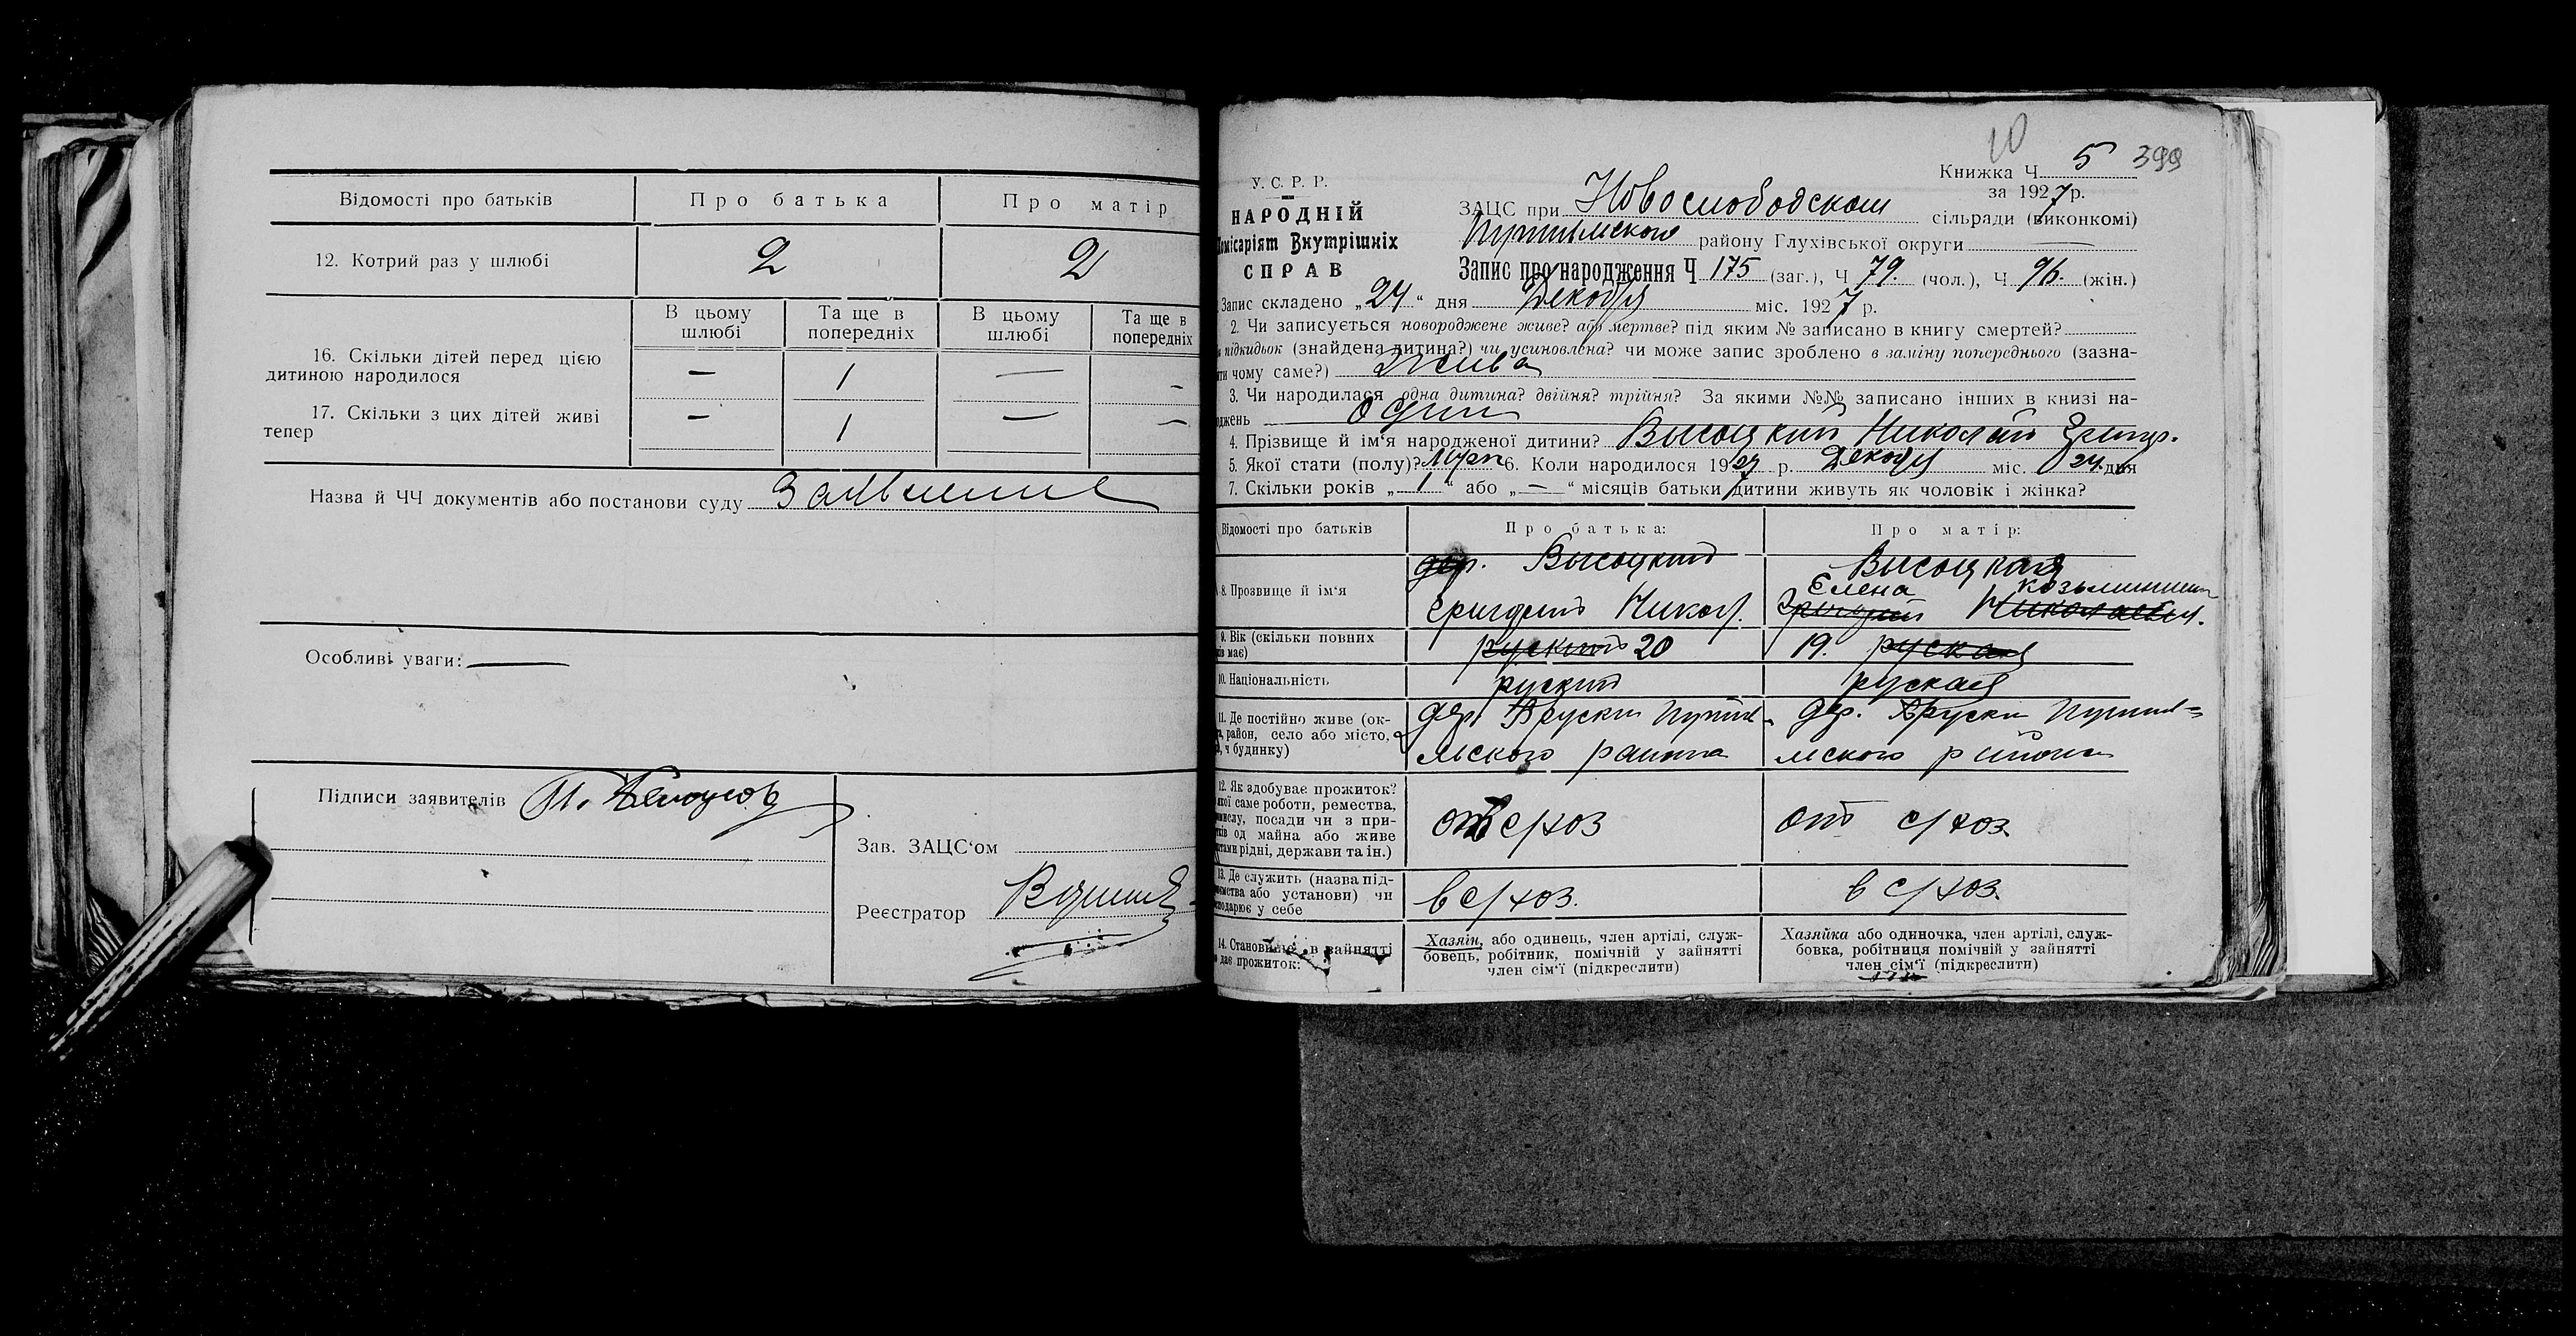 Відомості про батьків
Про батька
Про матір
12. Котрий раз у шлюбі
2
2
В цьому шлюбі
Та ще в попередніх
В цьому шлюбі
Та ще в попередніх
16. Скільки дітей перед цією
дитиною народилося
—
1
—
—
17. Скільки з цих дітей живі
тепер
—
1
—
—
Назва й ЧЧ документів або постанови суду Заявление
Особливі уваги: —
Підписи заявителів
Зав. ЗАЦС‘ом
Реєстратор
10
Книжка Ч. 5 399
за 1927 р.
У. С. Р. Р.
НАРОДНІЙ
Комісаріят Внутрішніх
СПРАВ
ЗАЦС при Новослободском сільради (виконкомі)
Путивльского району Глухівської округи —
Запис про народження Ч 175 (заг.), Ч 79. (чол.), Ч 96. (жін.)
Запис складено „24“ дня Декабря міс. 1927 р.
2. Чи записується новороджене живе? або мертве? під яким № записано в книгу смертей?
підкидьок (знайдена дитина?) чи усиновлена? чи може запис зроблено в заміну попереднього (зазна-
чити чому саме?) Жива
3. Чи народилася одна дитина? двійня? трійня? За якими №№ записано інших в книзі на-
роджень один
4. Прізвище й ім‘я народженої дитини? Высоцкий Николай Григор.
5. Якої стати (полу)? Муж 6. Коли народилося 1927 р. Декабря міс. 24 дня
7. Скільки років „1“ або „—“ місяців батьки дитини живуть як чоловік і жінка?
Відомості про батьків
Про батька:
Про матір:
8. Прозвище й ім‘я
дер. Высоцкий
Григорий Никол.
Высоцкая
Елена Козьминишна
Григорий Николаевич.
9. Вік (скільки повних
років має)
руский 20
19. руская
10. Національність
руский
руская
11. Де постійно живе (ок-
руга, район, село або місто,
ч будинку)
дер. Бруски Путив-
льского района
дер. Бруски Путив-
льского района
12. Як здобуває прожиток?
якої саме роботи, ремества,
промислу, посади чи з при-
бутків од майна або живе
коштами рідні, держави та ін.)
от с/хоз
от с/хоз.
13. Де служить (назва під-
приємства або установи) чи
господарює у себе
в с/хоз.
в с/хоз.
14. Становище в зайнятті
що дає прожиток:
Хазяїн, або одинець, член артілі, служ-
бовець, робітник, помічній у зайнятті
член сім‘ї (підкреслити)
Хазяйка або одиночка, член артілі, служ-
бовка, робітниця помічній у зайнятті
член сім‘ї (підкреслити)